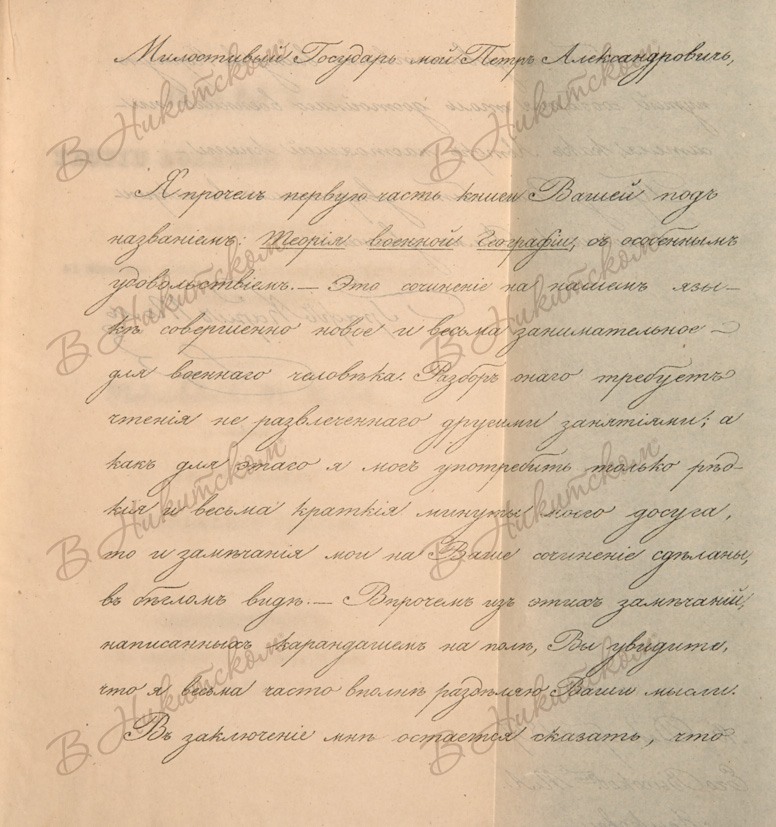 Милостивый Государь мой Петръ Александровичь,
Я прочелъ первую часть книги Вашей подъ
названіемъ: Теорія военной Географіи, съ особеннымъ
удовольствіемъ. — Это сочиненіе на нашемъ язы-
кѣ совершенно новое и весьма занимательное —
для военнаго человѣка. Разборъ онаго требуетъ
чтенія не развлеченнаго другими занятіями; а
какъ для этаго я могъ употребить только рѣд-
кія и весьма краткія минуты моего досуга,
то и замѣчанія мои на Ваше сочиненіе сдѣланы,
въ бѣгломъ видѣ. — Впрочемъ изъ этихъ замѣчаній,
написанныхъ карандашемъ на полѣ, Вы увидите,
что я весьма часто вполнѣ раздѣляю Ваши мысли.
Въ заключеніе мнѣ остается сказать, что
В Никитском
В Никитском
В Никитском
В Никитском
В Никитском
В Никитском
В Никитском
В Никитском